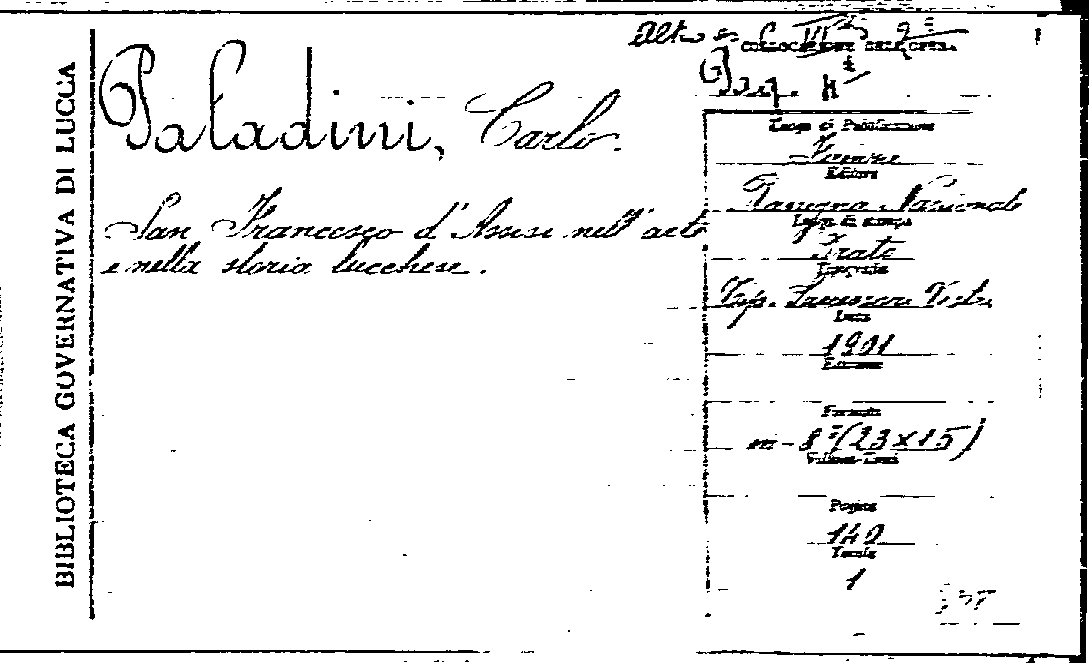 BIBLIOTECA GOVERNATIVA DI LUCCA
Paladini, Carlo.
San Francesco d'Assisi nell'arte
e nella storia lucchese.
COLLOCAZIONE DELL'OPERA
Luogo di Pubblicazione
Firenze
Editore
Rassegna Nazionale
Luogo di stampa
Prato
Tipografia
Tip. Successori Vestri
Data
1901
Edizione
Formato
in-8° (23x15)
Volume
Pagine
142
Tavole
1